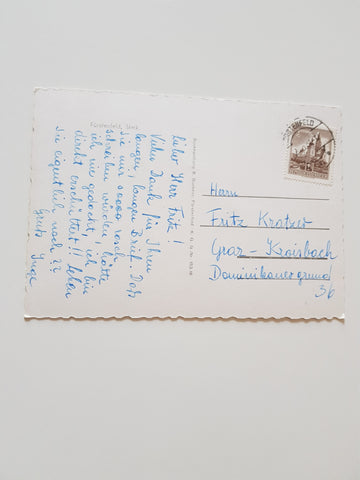 Fürstenfeld, Stmk.
Lieber Herr Fritz!
Vielen Dank für Ihren
langen, langen Brief. Daß
Sie mir soooo rasch
schreiben würden, hätte
ich nie gedacht, ich bin
direkt erschüttert!! Leben
Sie eigentlich noch??
Gruß Inge
Herrn
Fritz Kratner
Graz - Kroisbach
Dominikanergrund
36